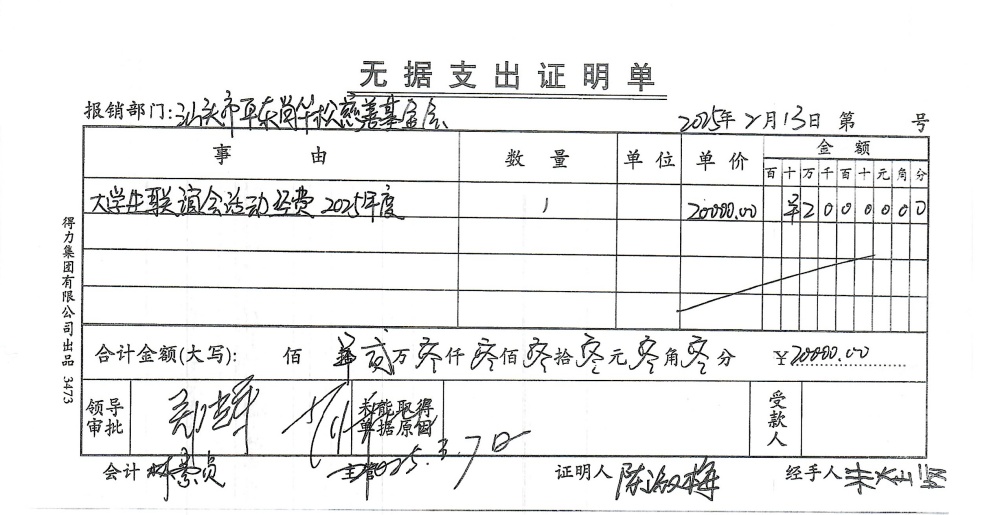 无据支出证明单
报销部门:汕头市华松慈善基金会 2025年2月13日 第 号
事 由 数 量 单 位 单 价 金 额
百 十 万 千 百 十 元 角 分
大学生联谊会活动经费2025年度 1 20000.00 ¥ 2 0 0 0 0 0 0
合计金额(大写): 佰 拾 贰万零仟零佰零拾零元零角零分 ¥20000.00
领导审批 未能取得单据原因 受款人
2025.3.7日
会计 主管 证明人 陈淑梅 经手人
得力集团有限公司出品 3473